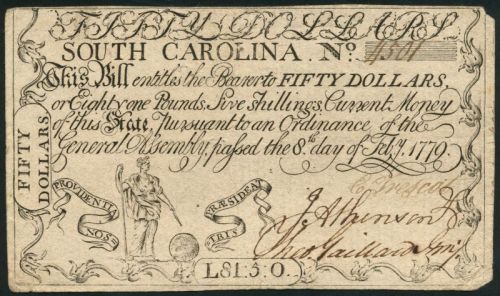 FIFTY DOLLARS
SOUTH CAROLINA. No.
This Bill entitles the Bearer to FIFTY DOLLARS,
or Eighty one Pounds Five Shillings, Current Money
of this State, Pursuant to an Ordinance of the
General Assembly, passed the 8th. day of Feby. 1779.
FIFTY
DOLLARS.
PROVIDENTIA
NOS
PRÆSIDEA
TRIS
J. Atkinson
Theo Gaillard Junr.
L81:5.0.